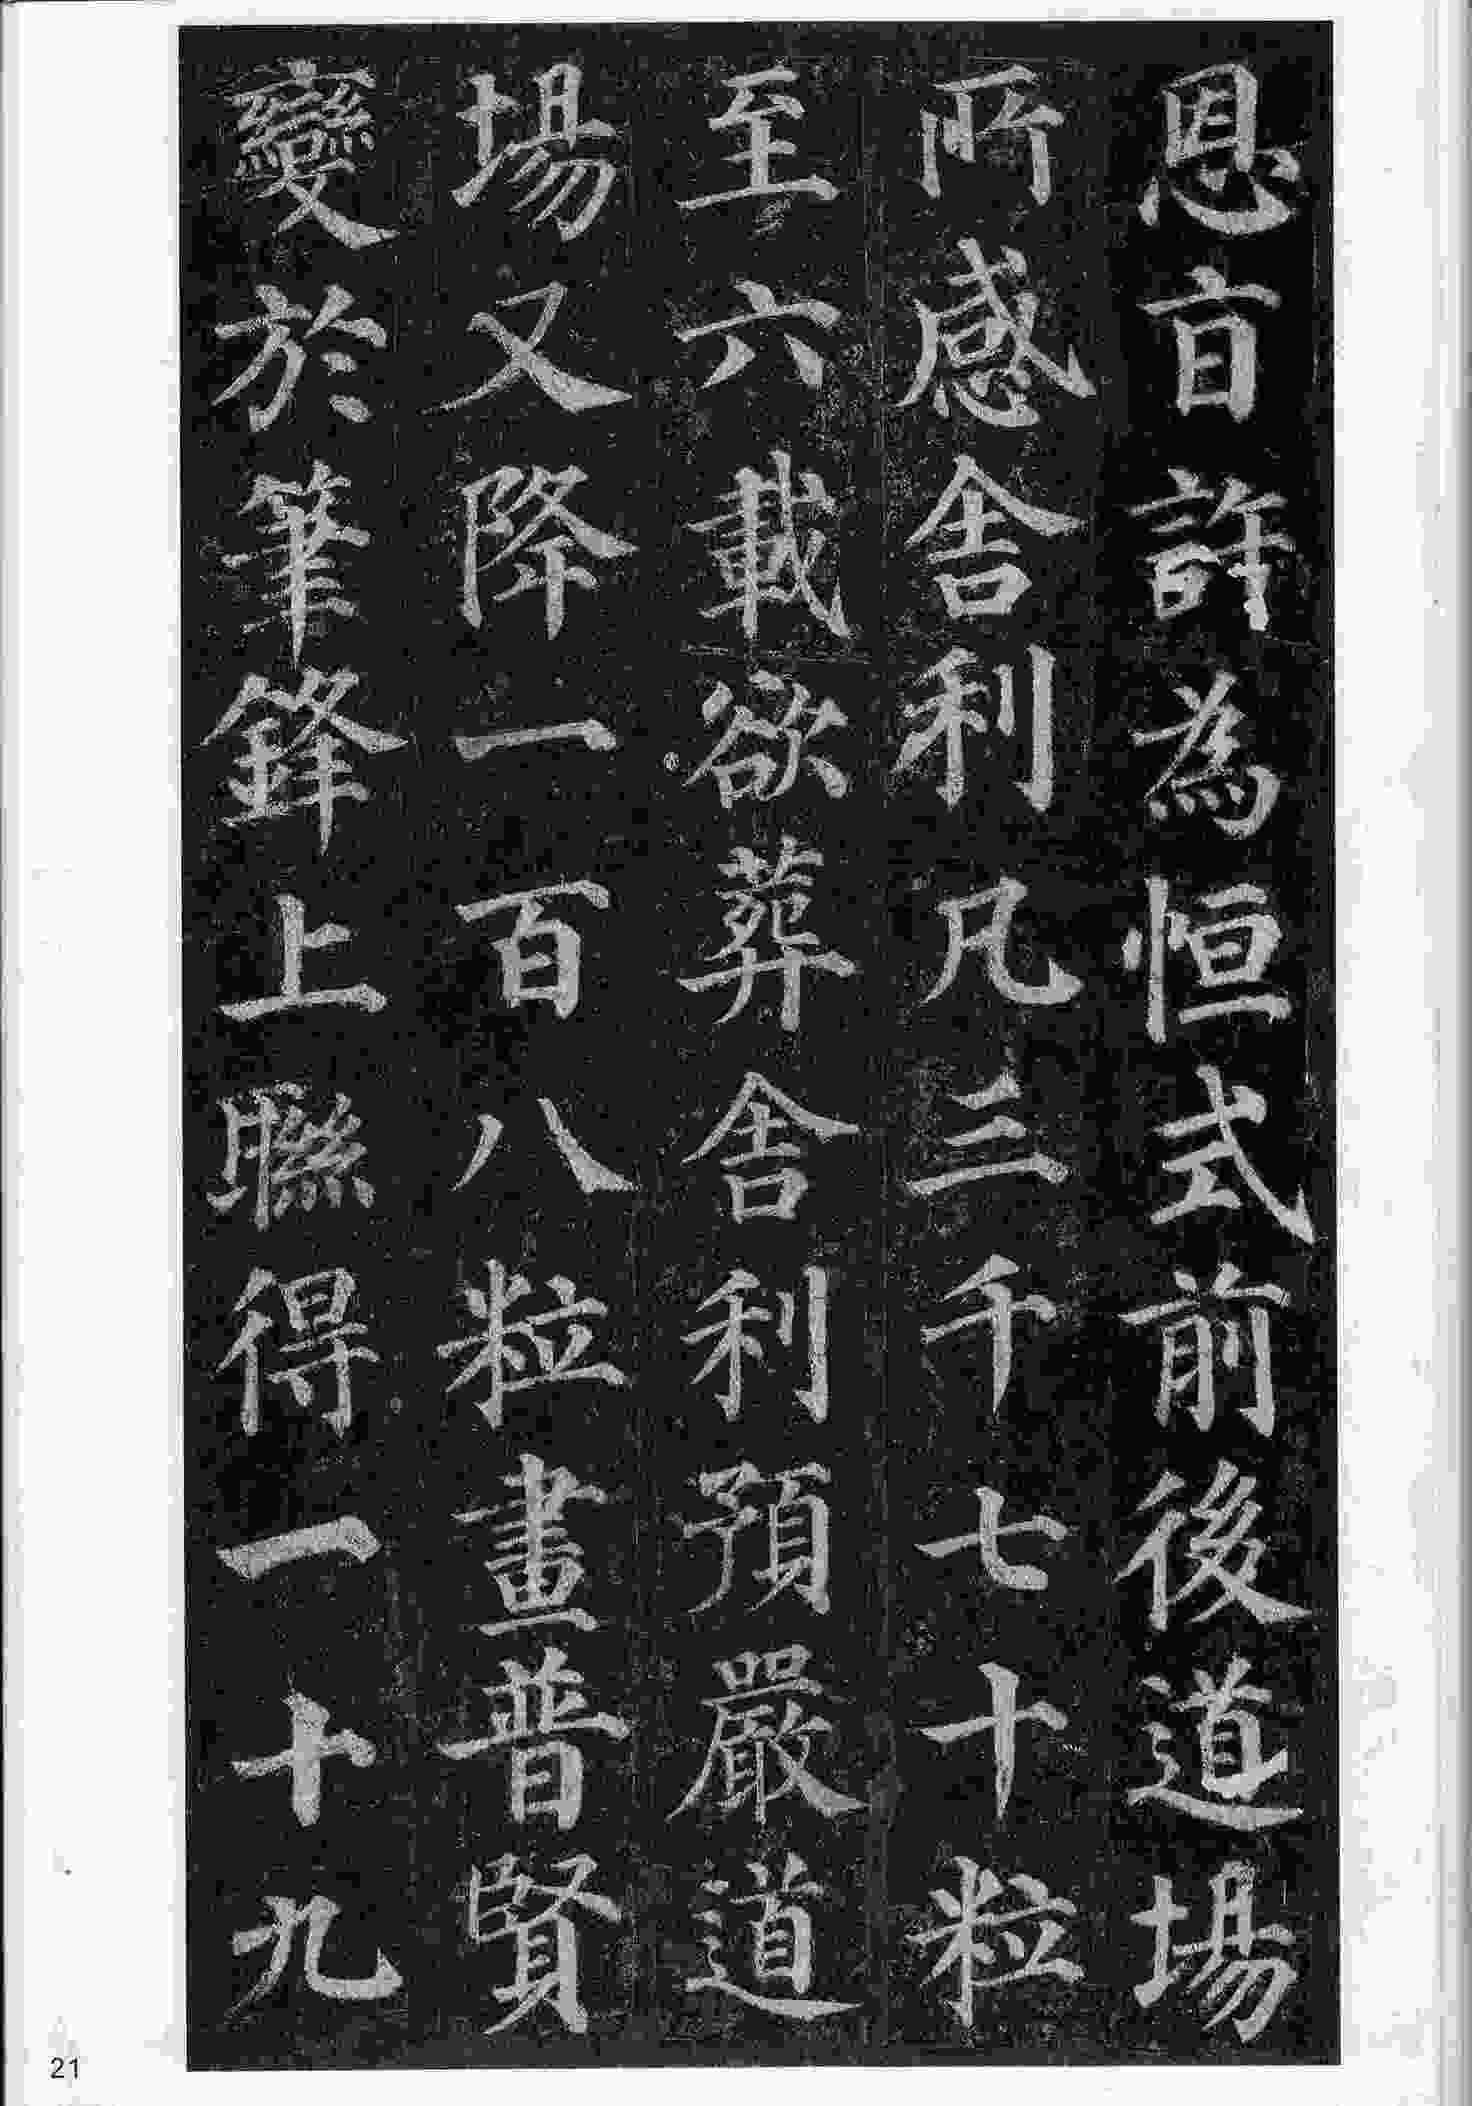 恩旨許為恒式前後道場
所感舍利凡三千七十粒
至六載欲葬舍利預嚴道
場又降一百八粒畫普賢
變於筆鋒上聯得一十九
21